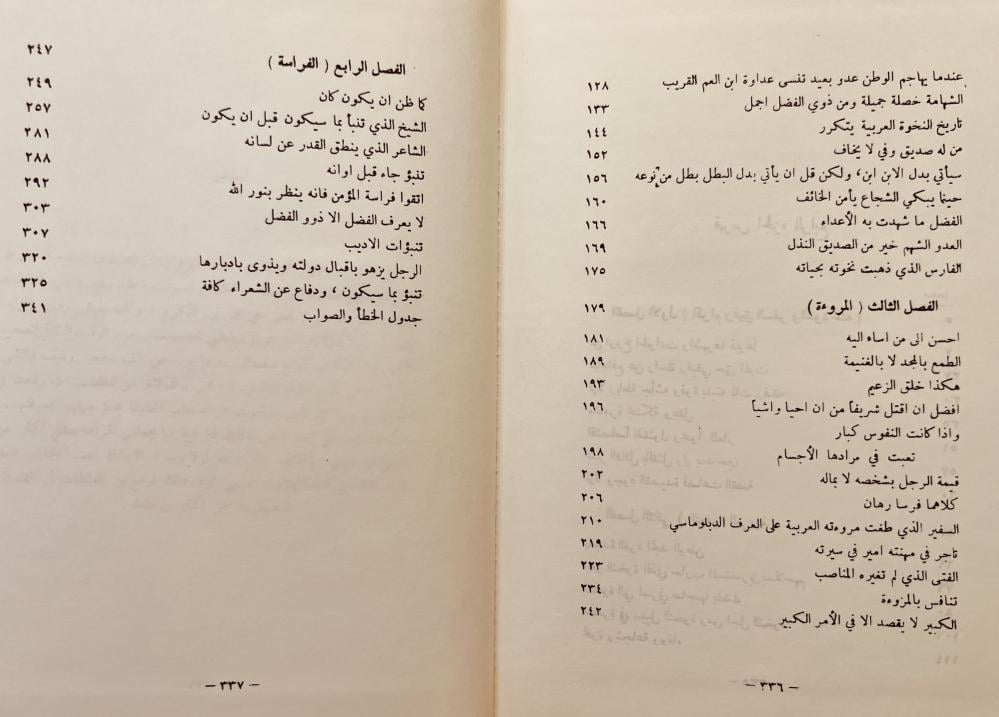 عندما يهاجم الوطن عدو بعيد تنسى عداوة ابن العم القريب ١٢٨
الشهامة خصلة جميلة ومن ذوي الفضل اجمل ١٣٣
تاريخ النخوة العربية يتكرر ١٤٤
من له صديق وفي لا يخاف ١٥٢
سيأتي بدل الابن ابن، ولكن قل ان يأتي بدل البطل بطل من نوعه ١٥٦
حينما يبكي الشجاع يأمن الخائف ١٦٠
الفضل ما شهدت به الأعداء ١٦٦
العدو الشهم خير من الصديق النذل ١٦٩
الفارس الذي ذهبت نخوته بحياته ١٧٥
الفصل الثالث ( المروءة ) ١٧٩
احسن الى من اساء اليه ١٨١
الطمع بالمجد لا بالغنيمة ١٨٩
هكذا خلق الزعيم ١٩٣
افضل ان اقتل شريفاً من ان احيا واشياً ١٩٦
واذا كانت النفوس كبار
تعبت في مرادها الأجسام ١٩٨
قيمة الرجل بشخصه لا بماله ٢٠٢
كلاهما فرسا رهان ٢٠٦
السفير الذي طغت مروءته العربية على العرف الدبلوماسي ٢١٠
تاجر في مهنته امير في سيرته ٢١٩
الفتى الذي لم تغيره المناصب ٢٢٣
تنافس بالمروءة ٢٣٤
الكبير لا يقصد الا في الأمر الكبير ٢٤٢
— ٣٣٦ —
الفصل الرابع ( الفراسة ) ٢٤٧
كما ظن ان يكون كان ٢٤٩
الشيخ الذي تنبأ بما سيكون قبل ان يكون ٢٥٧
الشاعر الذي ينطق القدر عن لسانه ٢٨١
تنبؤ جاء قبل اوانه ٢٨٨
اتقوا فراسة المؤمن فانه ينظر بنور الله ٢٩٢
لا يعرف الفضل الا ذوو الفضل ٣٠٣
تنبؤات الاديب ٣٠٧
الرجل يزهو باقبال دولته ويذوى بادبارها ٣٢٠
تنبؤ بما سيكون ، ودفاع عن الشعراء كافة ٣٢٥
جدول الخطأ والصواب ٣٤١
— ٣٣٧ —